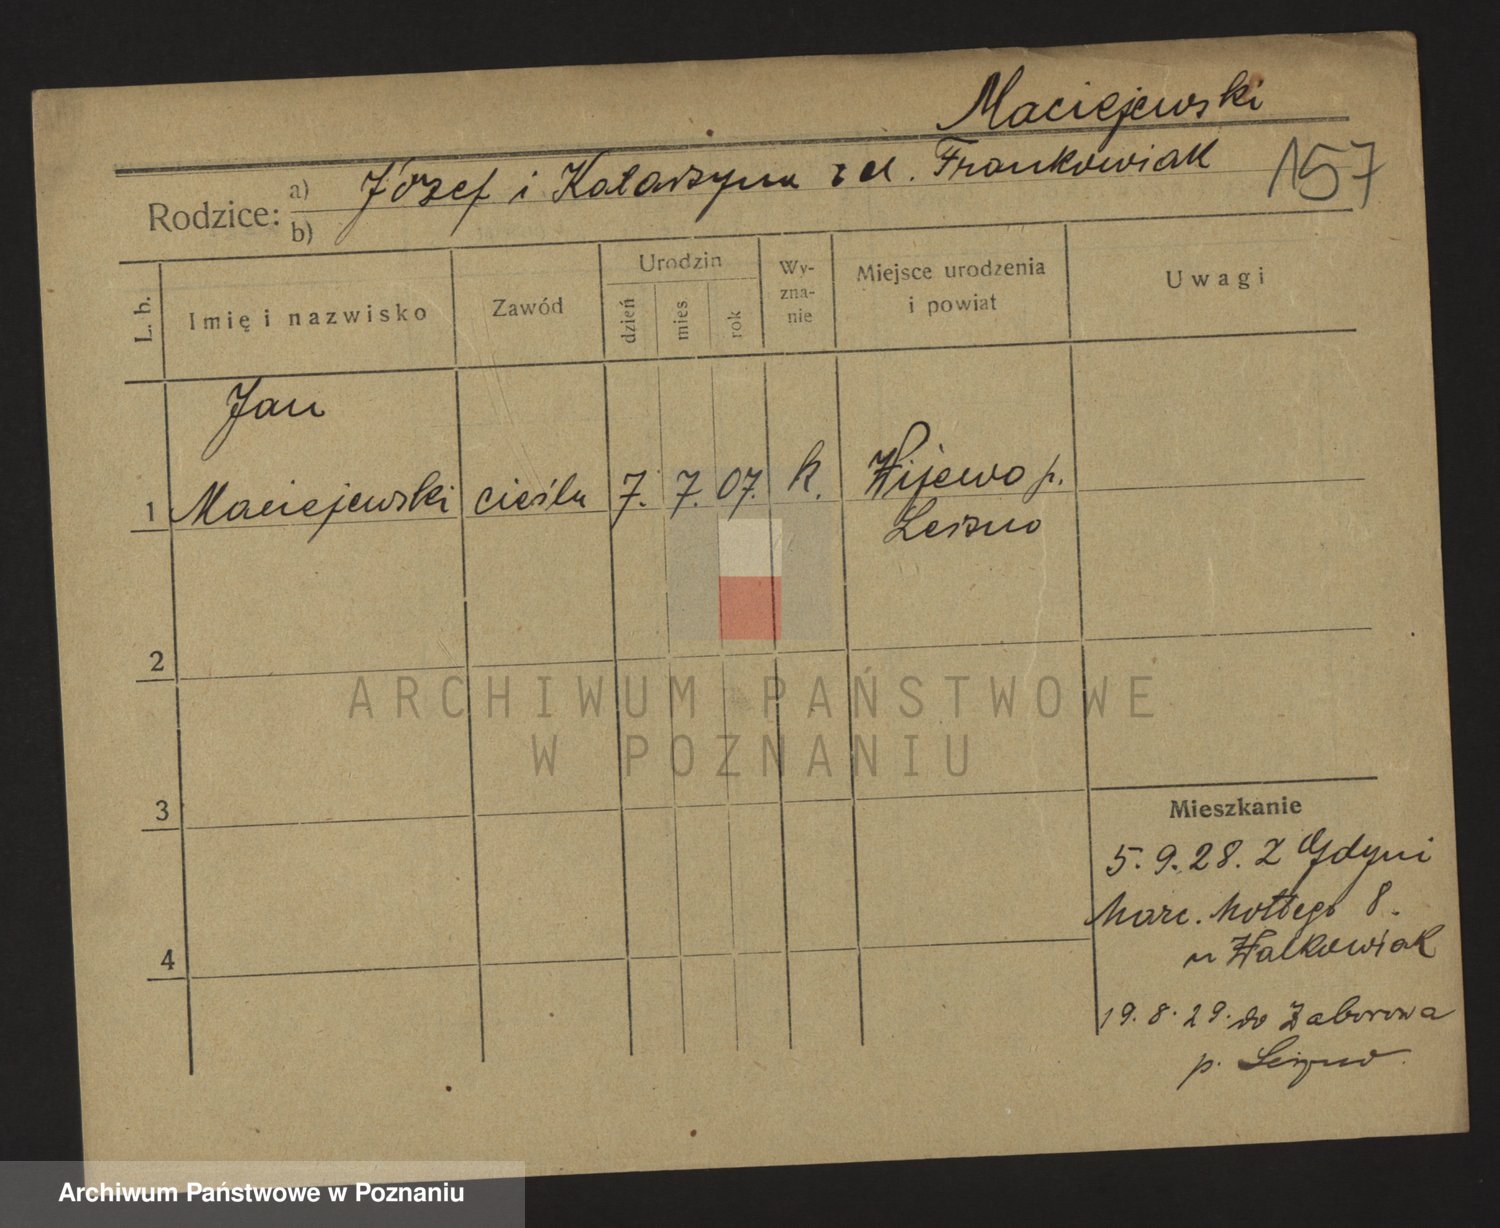 Maciejewski
157
Rodzice: a) Józef i Katarzyna z d. Frankowiak
b)
L. b. Imię i nazwisko Zawód Urodzin dzień mies rok Wy-zna-nie Miejsce urodzenia i powiat Uwagi
Jan
1 Maciejewski cieśla 7. 7. 07. k. Wijewo p.
Leszno
2
ARCHIWUM PAŃSTWOWE
W POZNANIU
3
Mieszkanie
5.9.28. z Gdyni
Marc. Mottego 8.
u Walkowiak
4
19.8.29. do Zaborowa
p. Leszno.
Archiwum Państwowe w Poznaniu